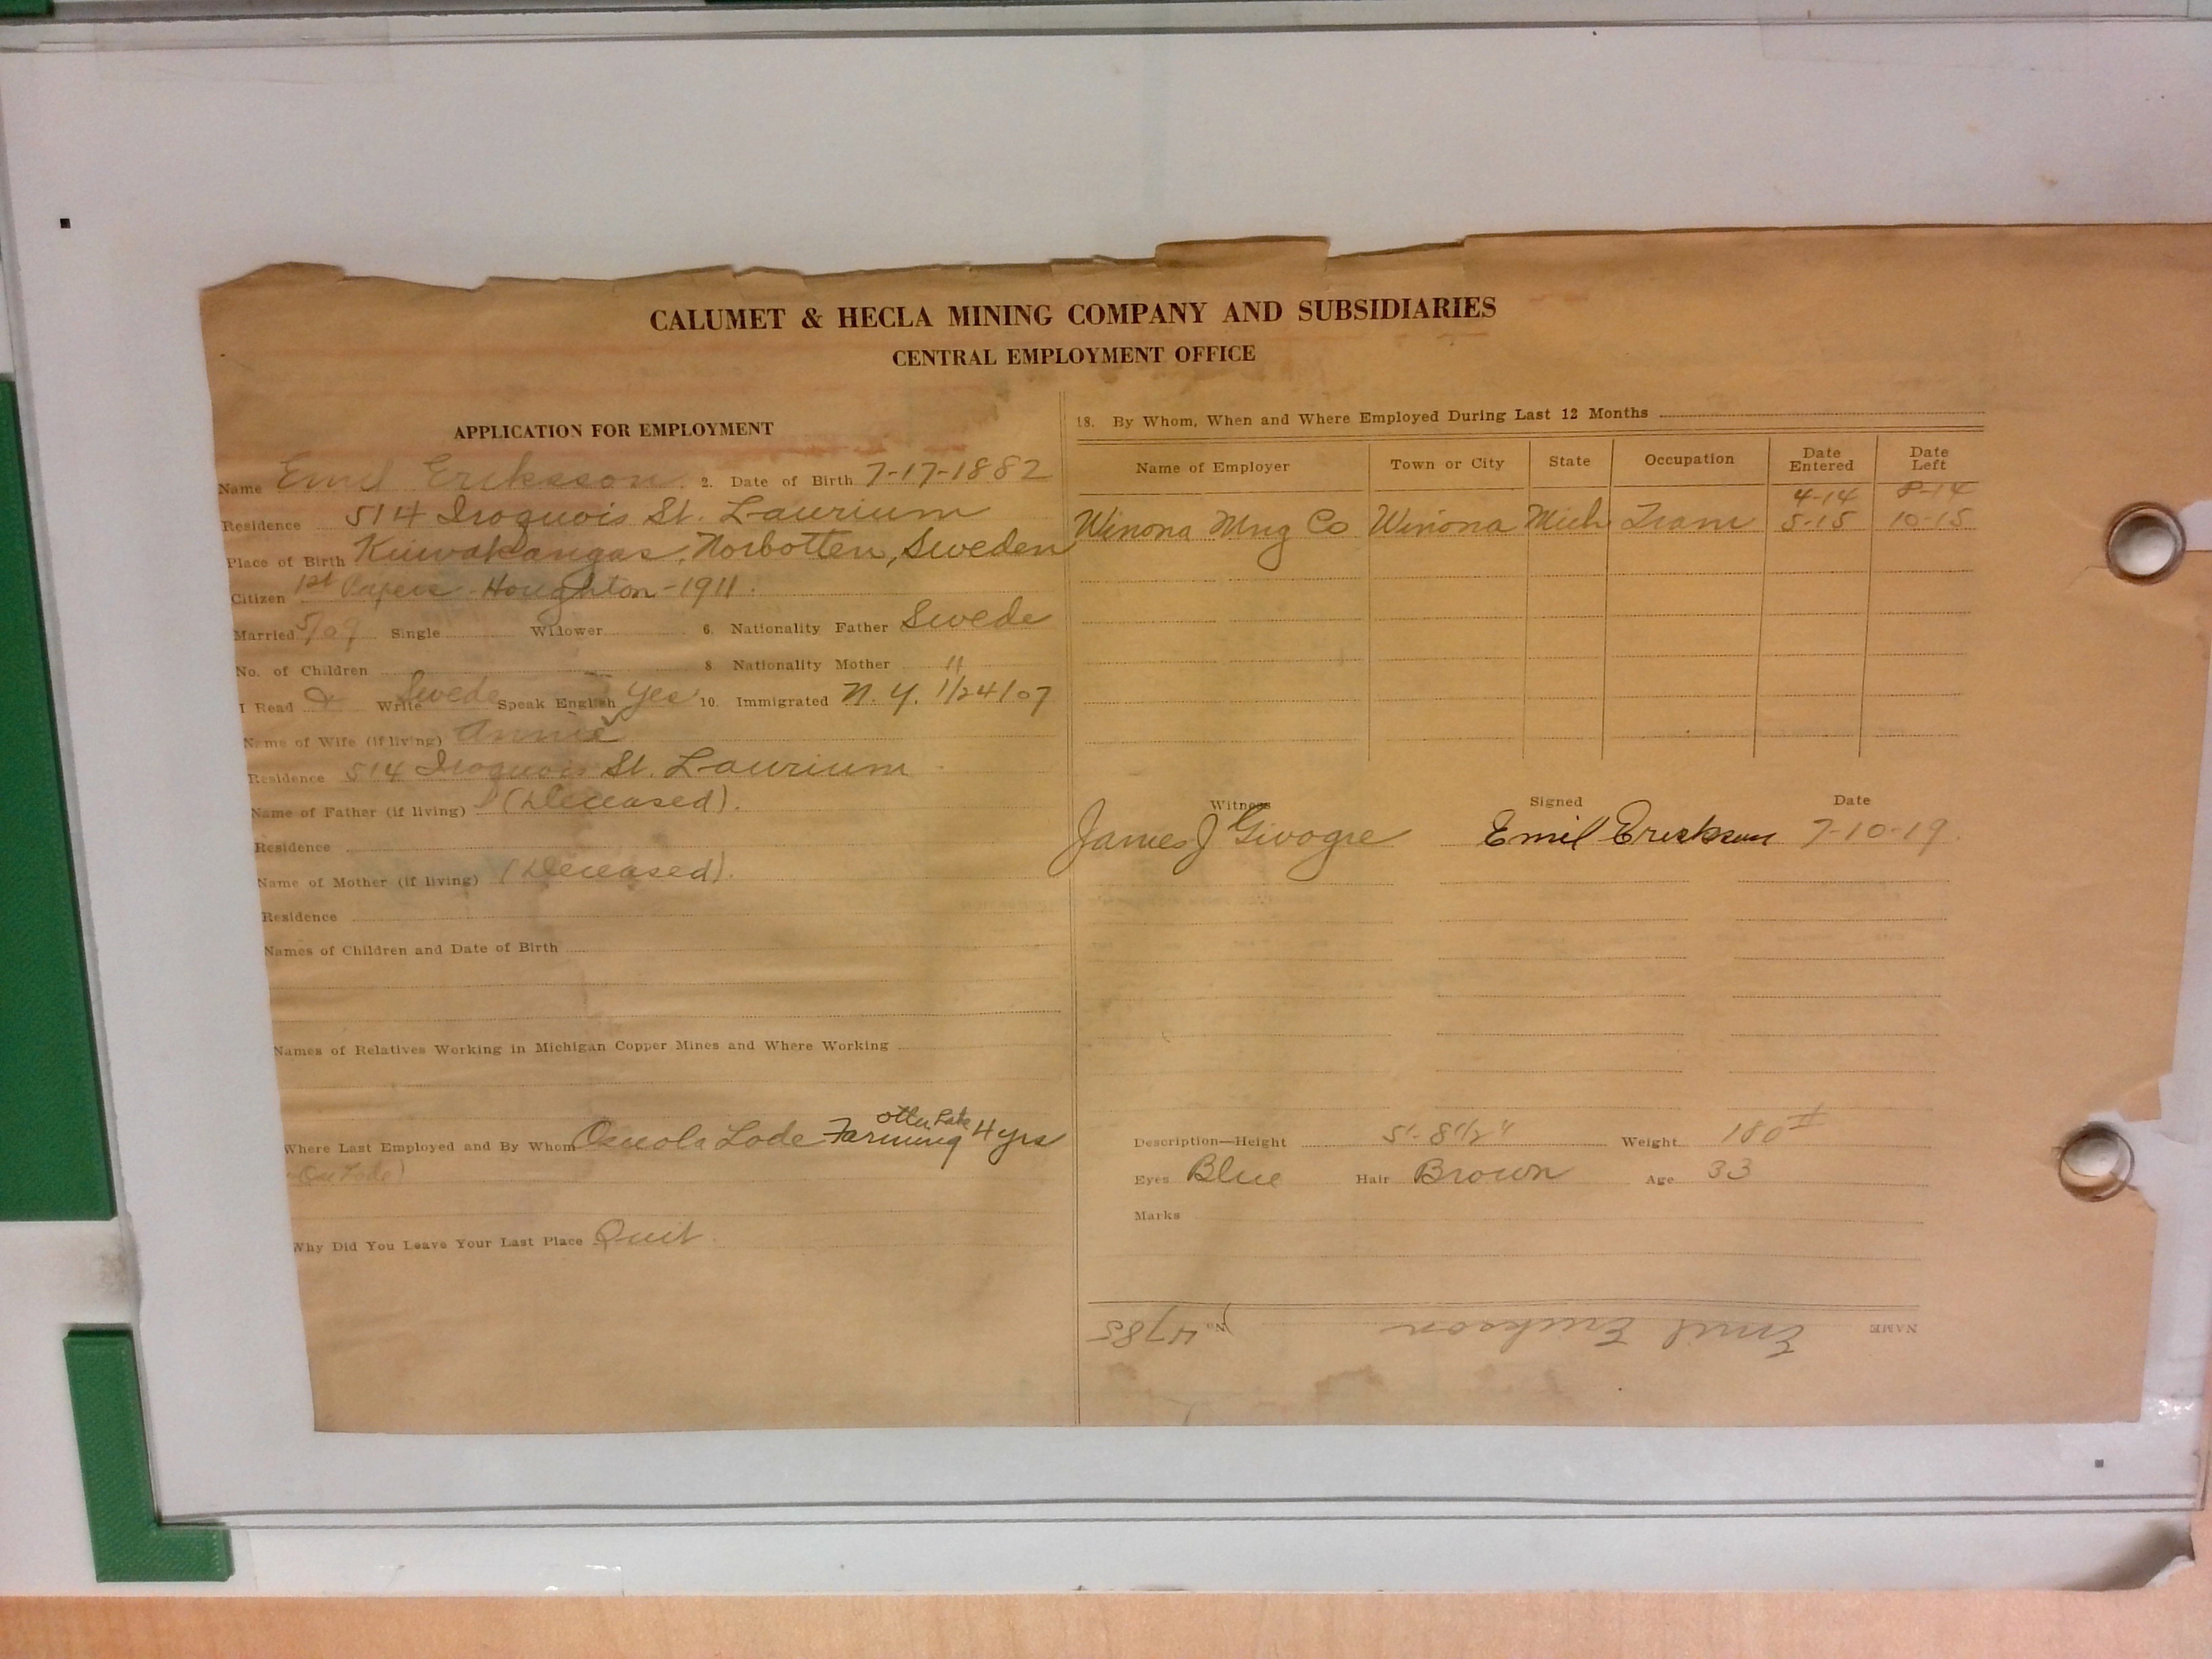 CALUMET & HECLA MINING COMPANY AND SUBSIDIARIES
CENTRAL EMPLOYMENT OFFICE
APPLICATION FOR EMPLOYMENT
Name Emil Eriksson 2. Date of Birth 7-17-1882
Residence 514 Iroquois St. Laurium
Place of Birth Norbotten, Sweden
Citizen 1st Papers - Houghton - 1911.
Married Single Widower 6. Nationality Father Swede
No. of Children 8. Nationality Mother "
I Read & Write Swede Speak English Yes 10. Immigrated N.Y. 1/24/07
Name of Wife (if living) Annie
Residence 514 Iroquois St. Laurium
Name of Father (if living) (Deceased).
Residence
Name of Mother (if living) (Deceased).
Residence
Names of Children and Date of Birth
Names of Relatives Working in Michigan Copper Mines and Where Working
Otter Lake
Where Last Employed and By Whom Osceola Lode Farming 4 yrs
Why Did You Leave Your Last Place Quit
18. By Whom, When and Where Employed During Last 12 Months
Name of Employer Town or City State Occupation Date Entered Date Left
4-14 8-14
Winona Mng Co Winona Mich Tram 5-15 10-15
Witness Signed Date
James J Givogre Emil Erickson 7-10-19
Description—Height 5'-8 1/2" Weight 180#
Eyes Blue Hair Brown Age 33
Marks
NAME Emil Erickson No. 4785